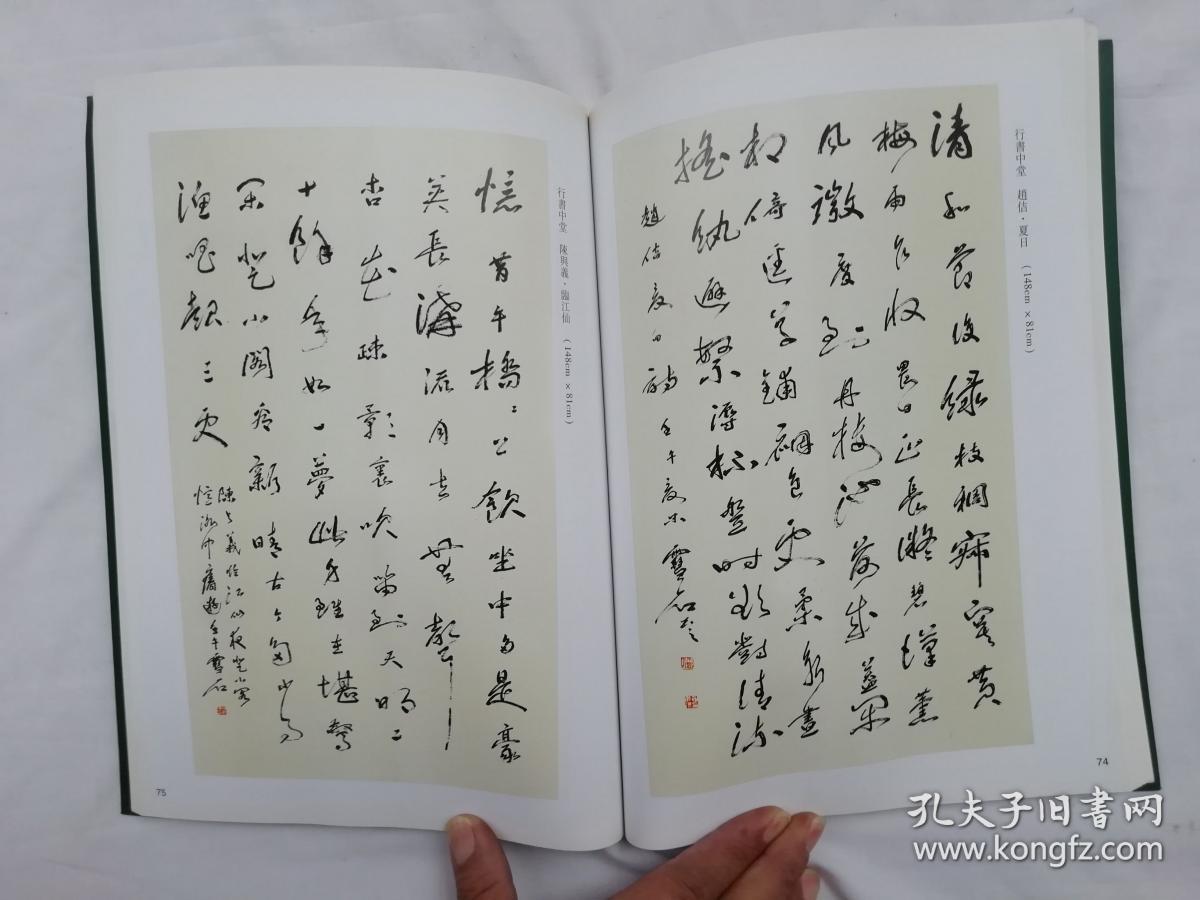 行書中堂 趙佶·夏日 (148cm×81cm)
清和節後綠枝稠寂寞黃
梅雨乍收畏日正長凝碧漢薰
風微度到丹樓池荷成蓋閑
相倚徑草鋪裀色更柔永晝
搖紈避繁溽杯盤時欲對清流
趙佶夏日詩 壬午夏末雪石
74
行書中堂 陳與義·臨江仙 (148cm×81cm)
憶昔午橋〻上飲坐中多是豪
英長溝流月去無聲
杏花疎影裏吹笛到天明二
十餘年如一夢此身雖在堪驚
閑登小閣看新晴古今多少事
漁唱起三更
陳與義臨江仙夜登小閣
憶洛中舊遊壬午雪石
75
孔夫子旧书网
www.kongfz.com